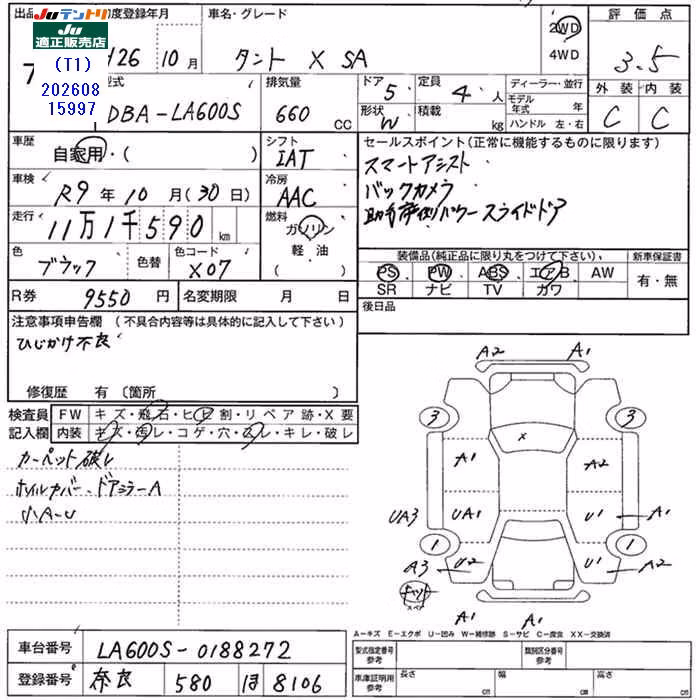 出品
Juテントリ
JU 適正販売店
(T1)
202608
15997
初度登録年月
H26年10月
車名・グレード
タント X SA
2WD
4WD
評価点
3.5
外装 内装
C C
型式
DBA-LA600S
排気量
660 CC
ドア 5
形状 W
定員 4人
積載 kg
ディーラー・並行
モデル年式 年
ハンドル 左・右
車歴
自家用・( )
シフト
IAT
車検
R9年10月(30日)
冷房
AAC
走行
11万1千590km
燃料
ガソリン
軽・油
( )
色
ブラック
色替
色コード
X07
セールスポイント(正常に機能するものに限ります)
スマートアシスト
バックカメラ
助手席側パワースライドドア
装備品(純正品に限り丸をつけて下さい)
新車保証書
PS PW ABS エアB AW
SR ナビ TV カワ
有・無
R券 9550円
名変期限 月 日
後日品
注意事項申告欄(不具合内容等は具体的に記入して下さい)
ひじかけ不良
修復歴 有〔箇所 〕
検査員記入欄
FW キズ・飛石・ヒビ割・リペア跡・X要
内装 キズ・汚レ・コゲ・穴・スレ・キレ・破レ
カーペット破レ
ホイルカバー、ドアミラーA
小A-U
A2 A1
3 3
A1 A2
X
UA3 UA1 U1 A1
1 1
A3 U2 U1 A2
キット
スペア
A1 A1
A-キズ E-エクボ U-凹み W-補修跡 S-サビ C-腐食 XX-交換済
車台番号 LA600S-0188272
登録番号 奈良 580 ほ 8106
型式指定番号 参考
類別区分番号 参考
車庫証明用 参考
長さ cm 幅 cm 高さ cm